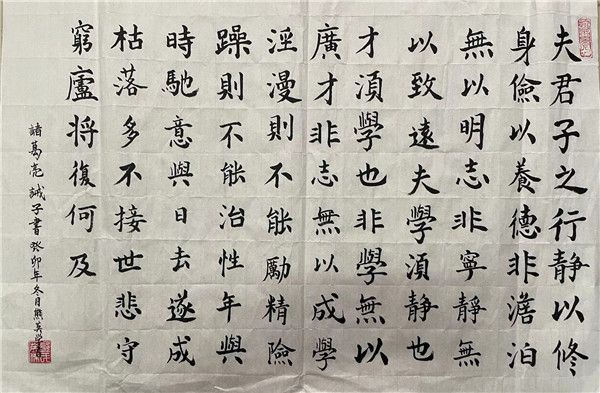 夫君子之行静以修
身儉以養德非澹泊
無以明志非寧静無
以致遠夫學湏静也
才湏學也非學無以
廣才非志無以成學
淫漫則不能勵精險
躁則不能治性年與
時馳意與日去遂成
枯落多不接世悲守
窮廬将復何及
諸葛亮誡子書 癸卯年冬月熊英書